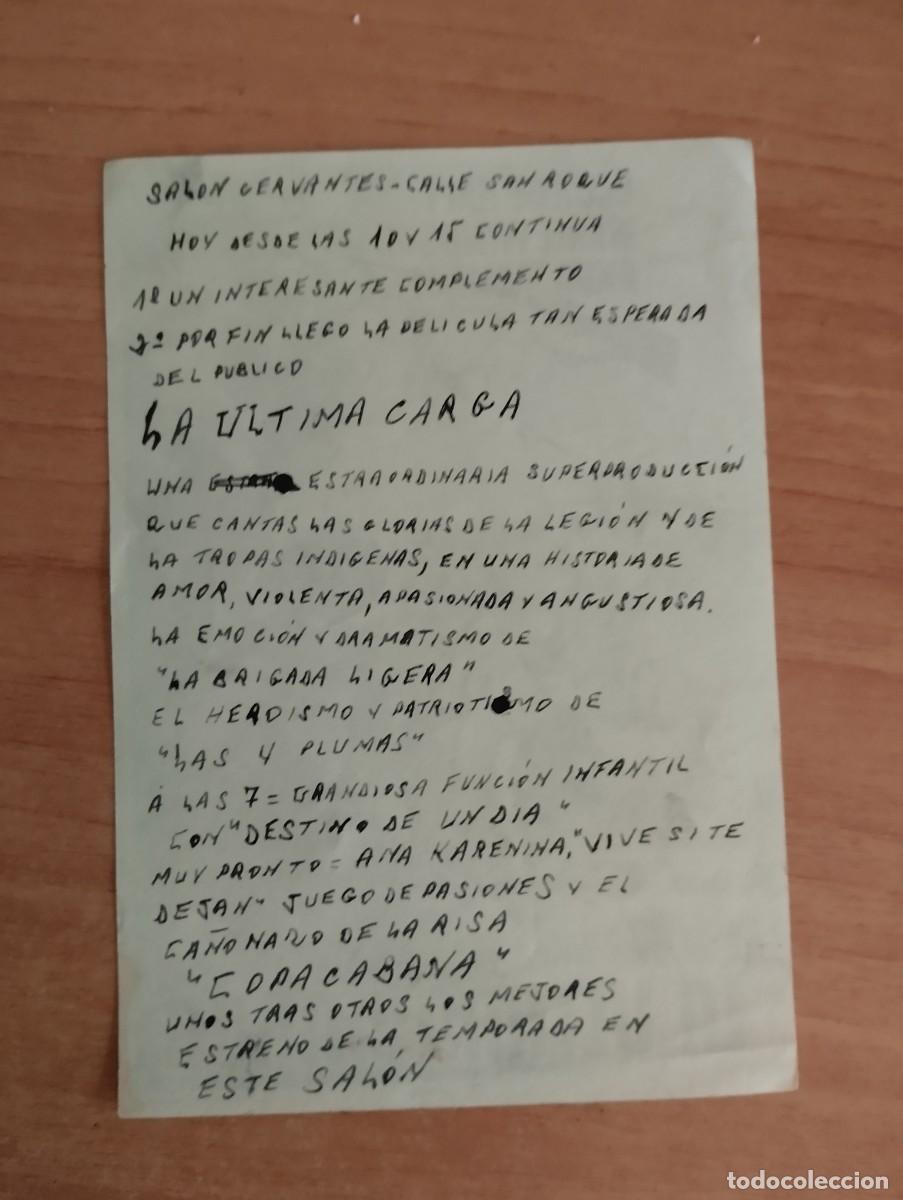 SALON CERVANTES - CALLE SAN ROQUE
HOY DESDE LAS 10 Y 15 CONTINUA
1º UN INTERESANTE COMPLEMENTO
2º POR FIN LLEGO LA PELICULA TAN ESPERADA
DEL PUBLICO
LA ULTIMA CARGA
UNA ESTRAORDINARIA SUPERPRODUCCIÓN
QUE CANTAS LAS GLORIAS DE LA LEGIÓN Y DE
LA TROPAS INDIGENAS, EN UNA HISTORIA DE
AMOR, VIOLENTA, APASIONADA Y ANGUSTIOSA.
LA EMOCIÓN Y DRAMATISMO DE
"LA BRIGADA LIGERA"
EL HEROISMO Y PATRIOTISMO DE
"LAS 4 PLUMAS"
A LAS 7 = GRANDIOSA FUNCIÓN INFANTIL
CON "DESTINO DE UN DIA"
MUY PRONTO = ANA KARENINA, "VIVE SI TE
DEJAN" JUEGO DE PASIONES Y EL
CAÑONAZO DE LA RISA
"COPACABANA"
UNOS TRAS OTROS LOS MEJORES
ESTRENO DE LA TEMPORADA EN
ESTE SALÓN
todocoleccion